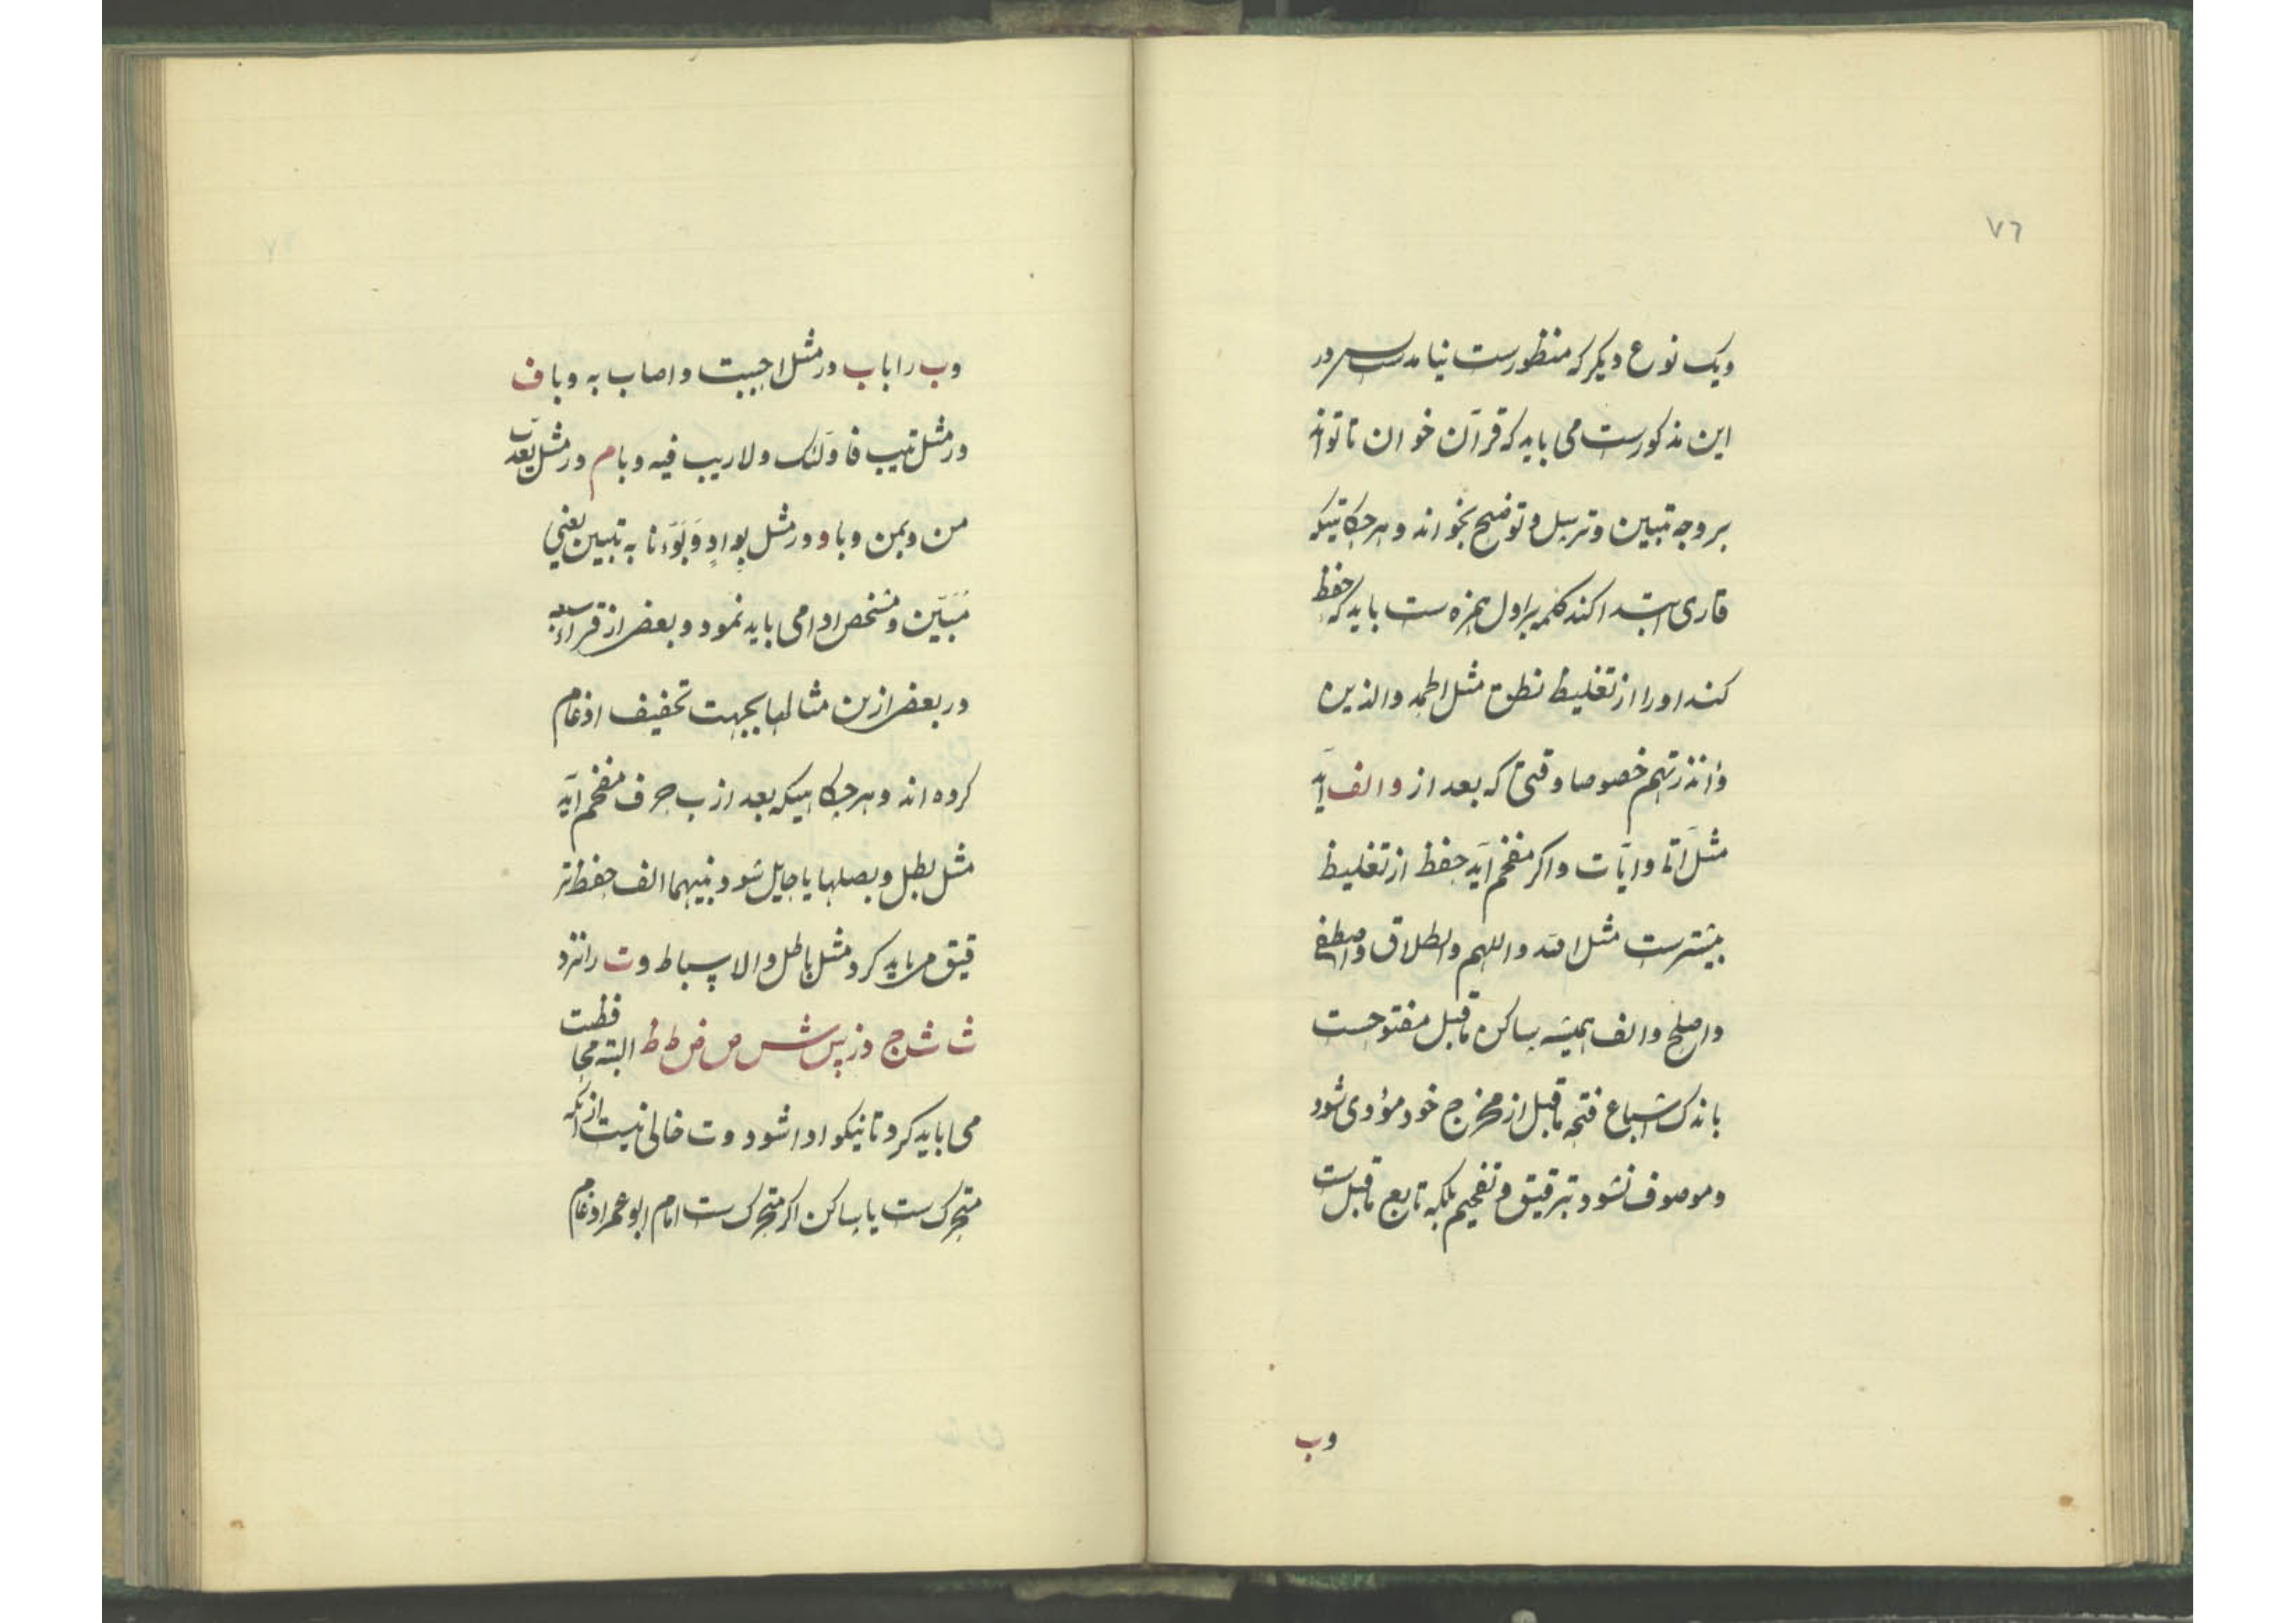 ٧٦
ویک نوع دیکر که منظورست نیامدست سر در
این مذکورست می باید که قرآن خوان تا تواند
بر وجه تبیین و ترسل و توضیح بخواند و هر جکاه تیکه
قاری ابتدا کند کلمه براول همزه ست باید که حفظ
کند او را از تغلیظ نطق مثل الحمد والذین
وأنذرتهم خصوصا وقتی که بعد از و الف آید
مثل آتا وایَات واکر مفخم آید حفظ از تغلیظ
بیشترست مثل الله واللهم والطلاق واصطفی
واصلح والف همیشه ساکن ماقبل مفتوحست
باندک اشباع فتحه ماقبل از مخرج خود مؤدی شود
وموصوف نشود بترقیق و تفخیم بلکه تابع ماقبل ست
وب
وب را باب در مثل اجیبت واصاب به وباف
در مثل یتب فاولئک ولاریب فیه وبام در مثل یعذب
من وبمن وباو در مثل بِوادٍ وَبَوَّءنا به تبیین یعنی
مُبَیَّن ومشخص ادا می باید نمود و بعضی از قراء سبعه
در بعضی ازین مثالها بجهت تخفیف ادغام
کرده اند وهر جکاهیکه بعد از ب حرف مفخم آید
مثل بطل وبصلها یا حایل شود بینهما الف حفظ تر
قیق می باید کرد مثل باطل والاسباط وت را نزد
ث ش ج ذ ز س ش ص ض ط ظ البته محافظت
می باید کرد تا نیکو ادا شود وت خالی نیست از انکه
متحرک ست یا ساکن اکر متحرک ست امام ابو عمرو ادغام